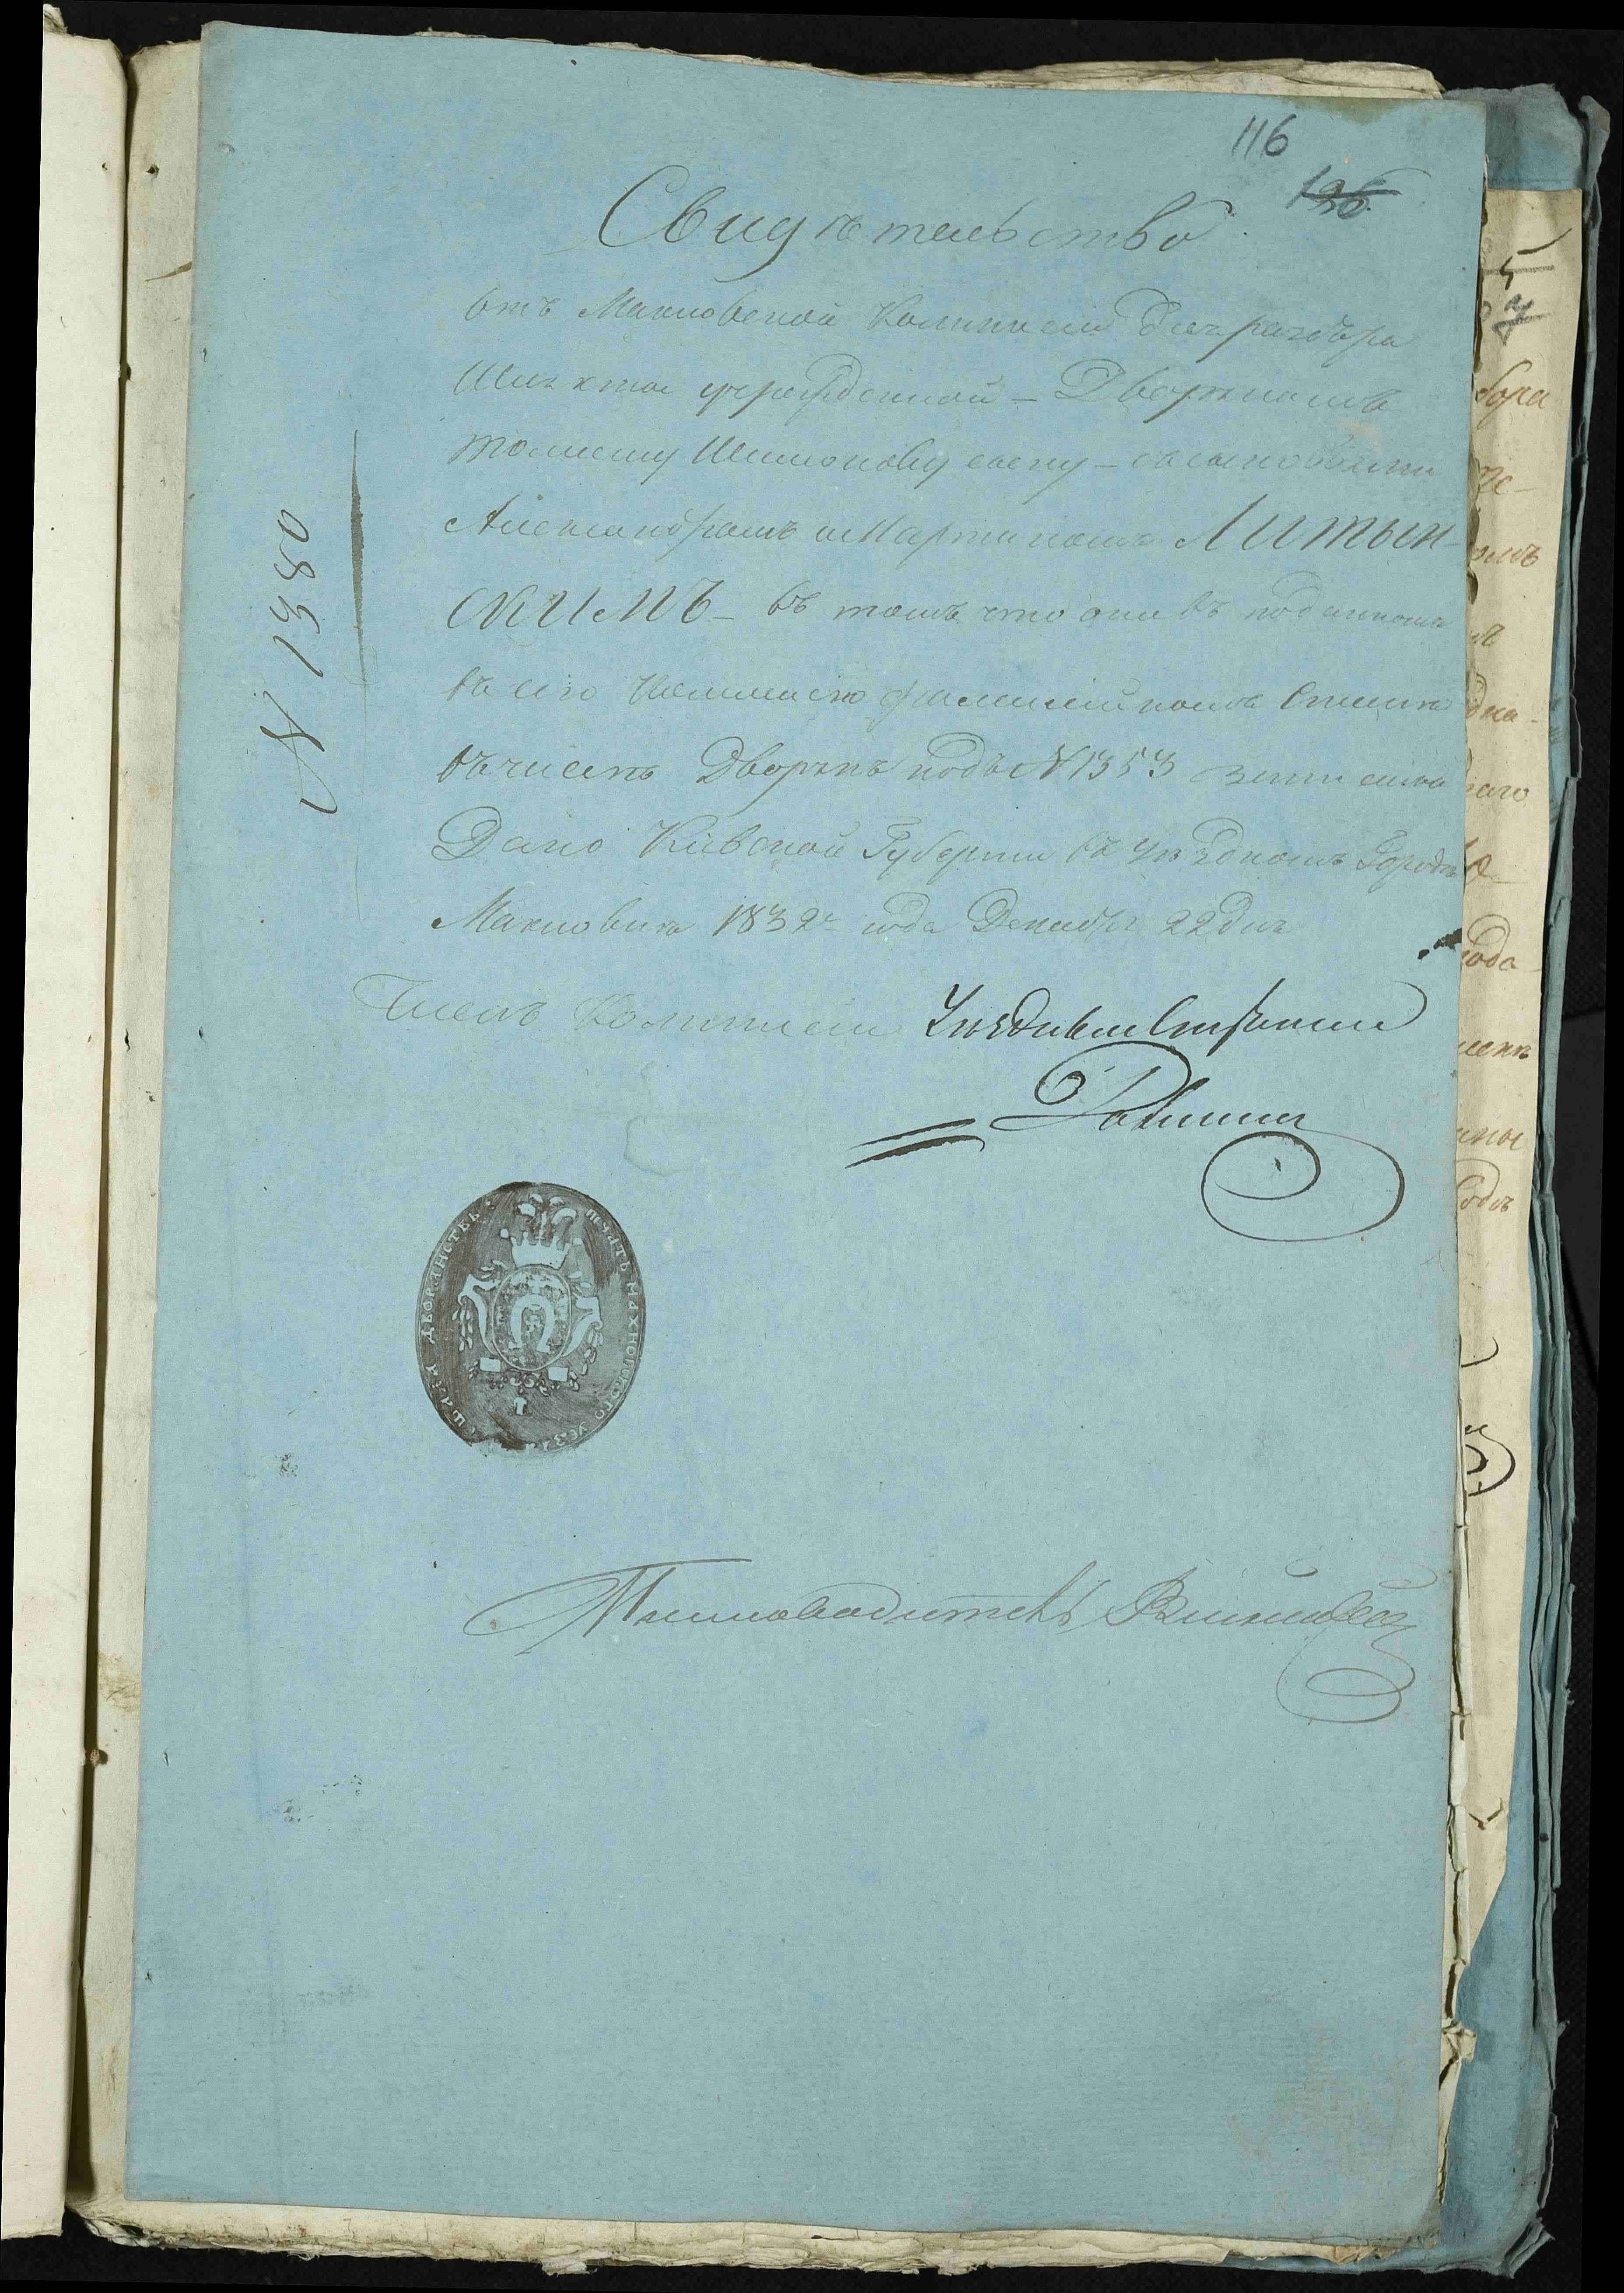 116
136
Свидѣтельство
отъ Махновской Коммисіи для разбора
Шляхты учрежденной – Дворянамъ
Томашу Шимонову сыну – съ сыновьями
Александромъ и Мартиномъ Литын-
скимъ – въ томъ что они въ поданномъ
въ сію Коммисію фамилійномъ Списке
въ числѣ Дворянъ подъ N 1353 записаны
Дано Кіевской Губерніи въ Уѣздномъ Городѣ
Махновкѣ 1832го года Декабря 22 дня
N 1380
Членъ Коммисіи Уѣздный Стряпчій
Письмоводитель
ПЕЧАТЬ МАХНОВСКОГО УЕЗД
ДВОРЯНСТВА